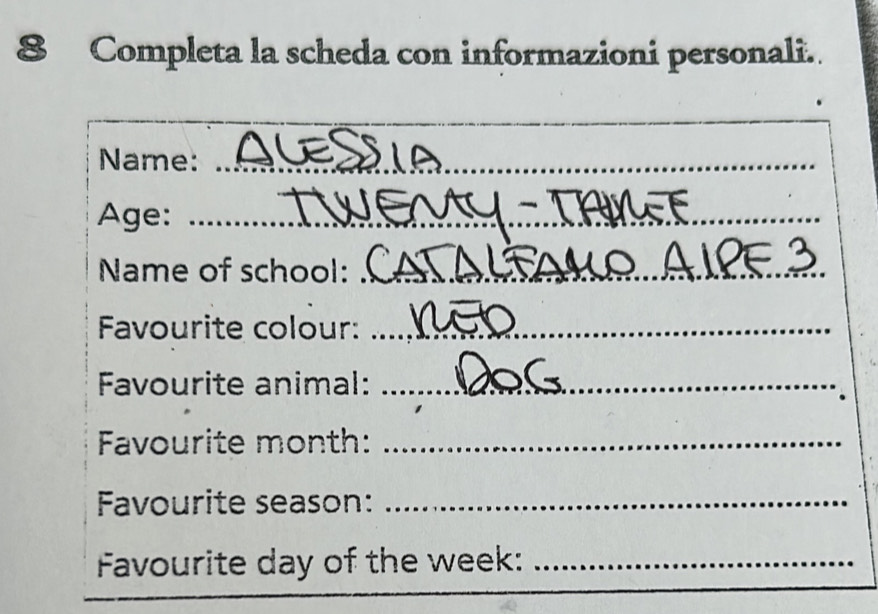 8 Completa la scheda con informazioni personali.
Name: ALESSIA
Age: TWENTY-THREE
Name of school: CATALFAMO AIPE 3
Favourite colour: RED
Favourite animal: DOG
Favourite month:
Favourite season:
Favourite day of the week: